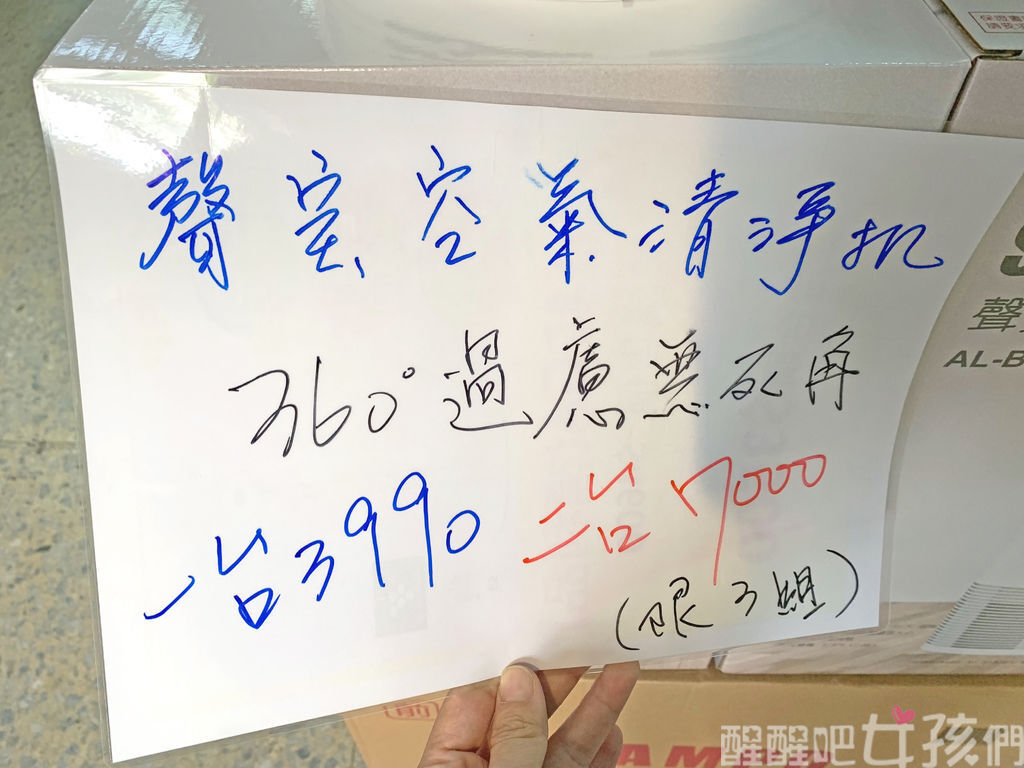 聲宝空氣清淨机
360°過慮無死角
一台3990 二台7000
(限3組)
S
聲
AL-B
AM
醒醒吧女孩們